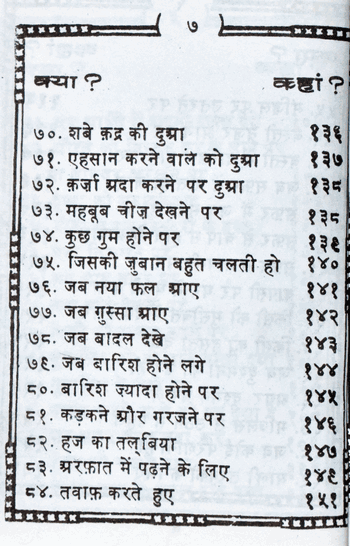 ( ७ )
क्या ? कहां ?
७०. शबे क़द्र की दुआ १३६
७१. एहसान करने वाले को दुआ १३७
७२. क़र्ज़ा अदा करने पर दुआ १३८
७३. महबूब चीज़ देखने पर १३८
७४. कुछ गुम होने पर १३९
७५. जिसकी ज़ुबान बहुत चलती हो १४०
७६. जब नया फल आए १४१
७७. जब ग़ुस्सा आए १४२
७८. जब बादल देखे १४३
७९. जब बारिश होने लगे १४४
८०. बारिश ज़्यादा होने पर १४५
८१. कड़कने और गरजने पर १४६
८२. हज का तल्बिया १४७
८३. अरफ़ात में पढ़ने के लिए १४९
८४. तवाफ़ करते हुए १५१